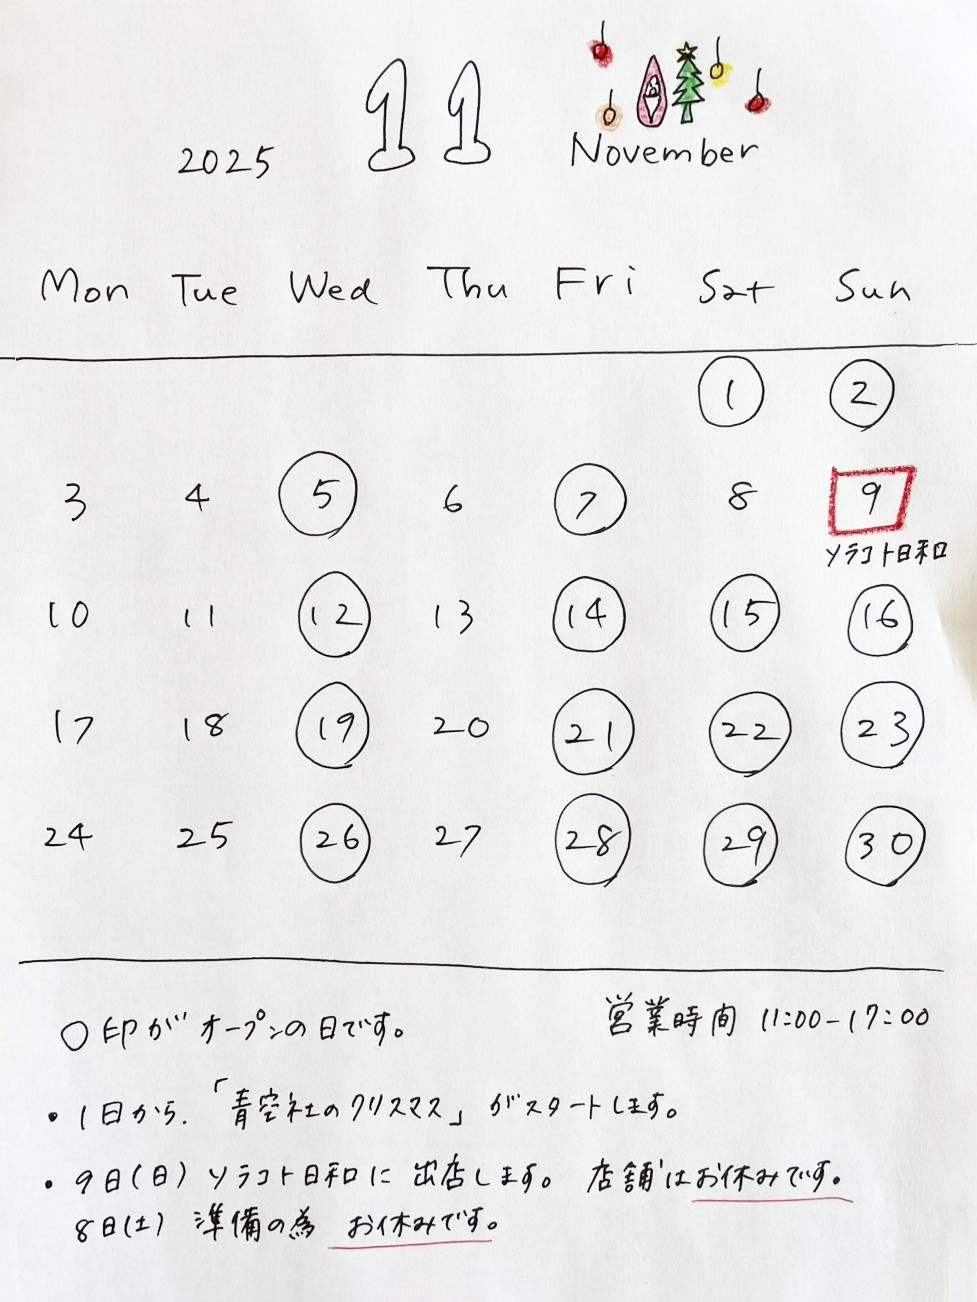 2025 11 November
Mon Tue Wed Thu Fri Sat Sun
1 2
3 4 5 6 7 8 9
ソラコト日和
10 11 12 13 14 15 16
17 18 19 20 21 22 23
24 25 26 27 28 29 30
○印がオープンの日です。 営業時間 11:00-17:00
・1日から.「青空社のクリスマス」がスタートします。
・9日(日)ソラコト日和に出店します。店舗はお休みです。
8日(土)準備の為 お休みです。